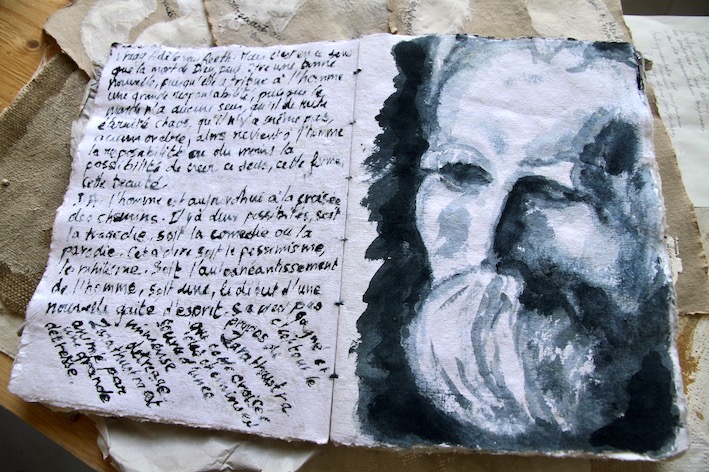 Mais c'est en ce sens
que la mort de Dieu peut être une bonne
nouvelle, puisqu'elle attribue à l'homme
une grande responsabilité, puisque le
monde n'a aucun sens, qu'il
chaos, qu'il n'y a même pas,
aucun ordre, alors revient à l'homme
la ou du moins la
possibilité de créer ce sens, cette forme,
cette beauté.
l'homme est aujourd'hui à la croisée
des chemins. Il y a deux possibités, soit
la tragédie, soit la comédie ou la
parodie. C'est à dire soit le pessimisme,
le nihilisme, soit l'autoanéantissement
de l'homme, soit d'une, le début d'une
nouvelle gaité d'esprit.
gagné en
c'est tout le
propos de Zarathustra
que cette croisée
des chemins,
source d'une
immense
détresse.
Zarathustra est
animé par
une grande
détresse.